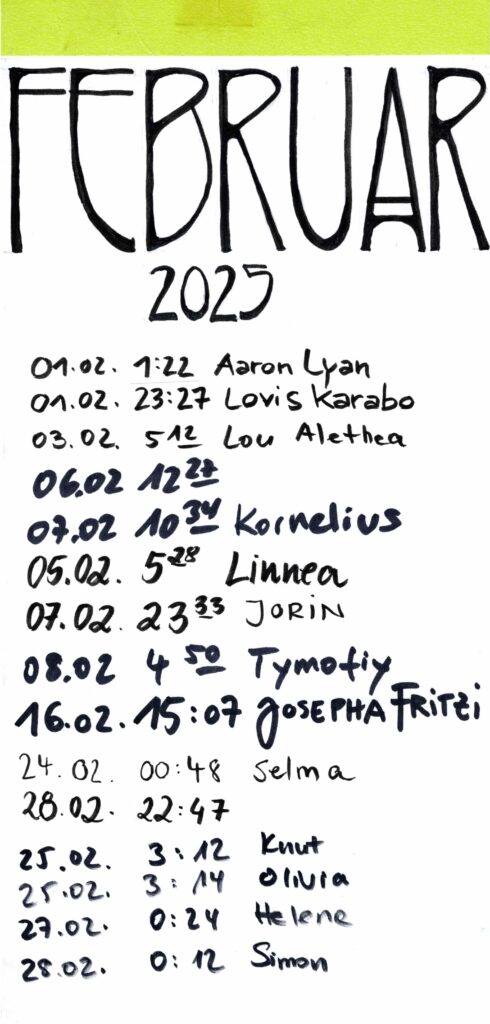 FEBRUAR
2025
01.02. 1:22 Aaron Lyan
01.02. 23:27 Lovis Karabo
03.02. 5 12 Lou Alethea
06.02 12 27
07.02 10 34 Kornelius
05.02. 5 28 Linnea
07.02. 23 33 JORIN
08.02 4 50 Tymofiy
16.02. 15:07 JOSEPHA FRITZI
24.02. 00:48 Selma
28.02. 22:47
25.02. 3:12 Knut
25.02. 3:14 Olivia
27.02. 0:24 Helene
28.02. 0:12 Simon